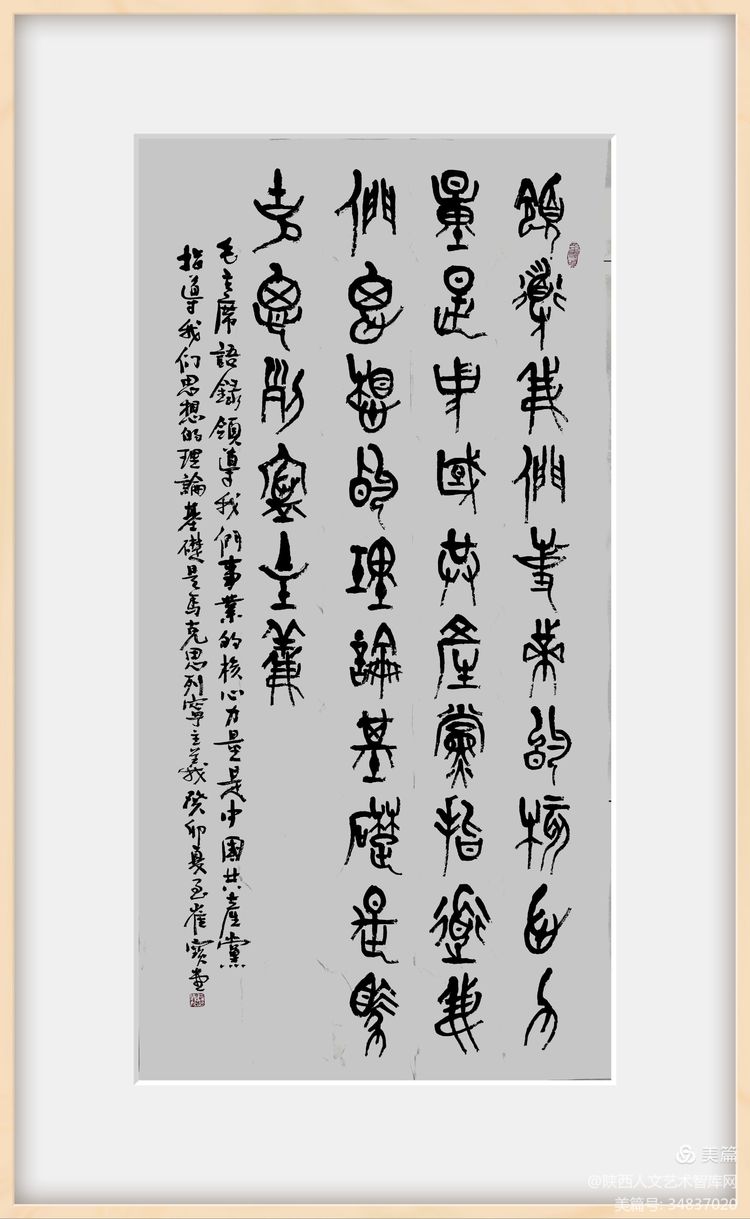 領導我們事業的核心力
量是中國共產黨指導我
們思想的理論基礎是馬
克思列寧主義
毛主席語錄領導我們事業的核心力量是中國共產黨
指導我们思想的理論基礎是馬克思列寧主義癸卯夏至崔寶堂
美篇
@陕西人文艺术智库网
美篇号: 34837020